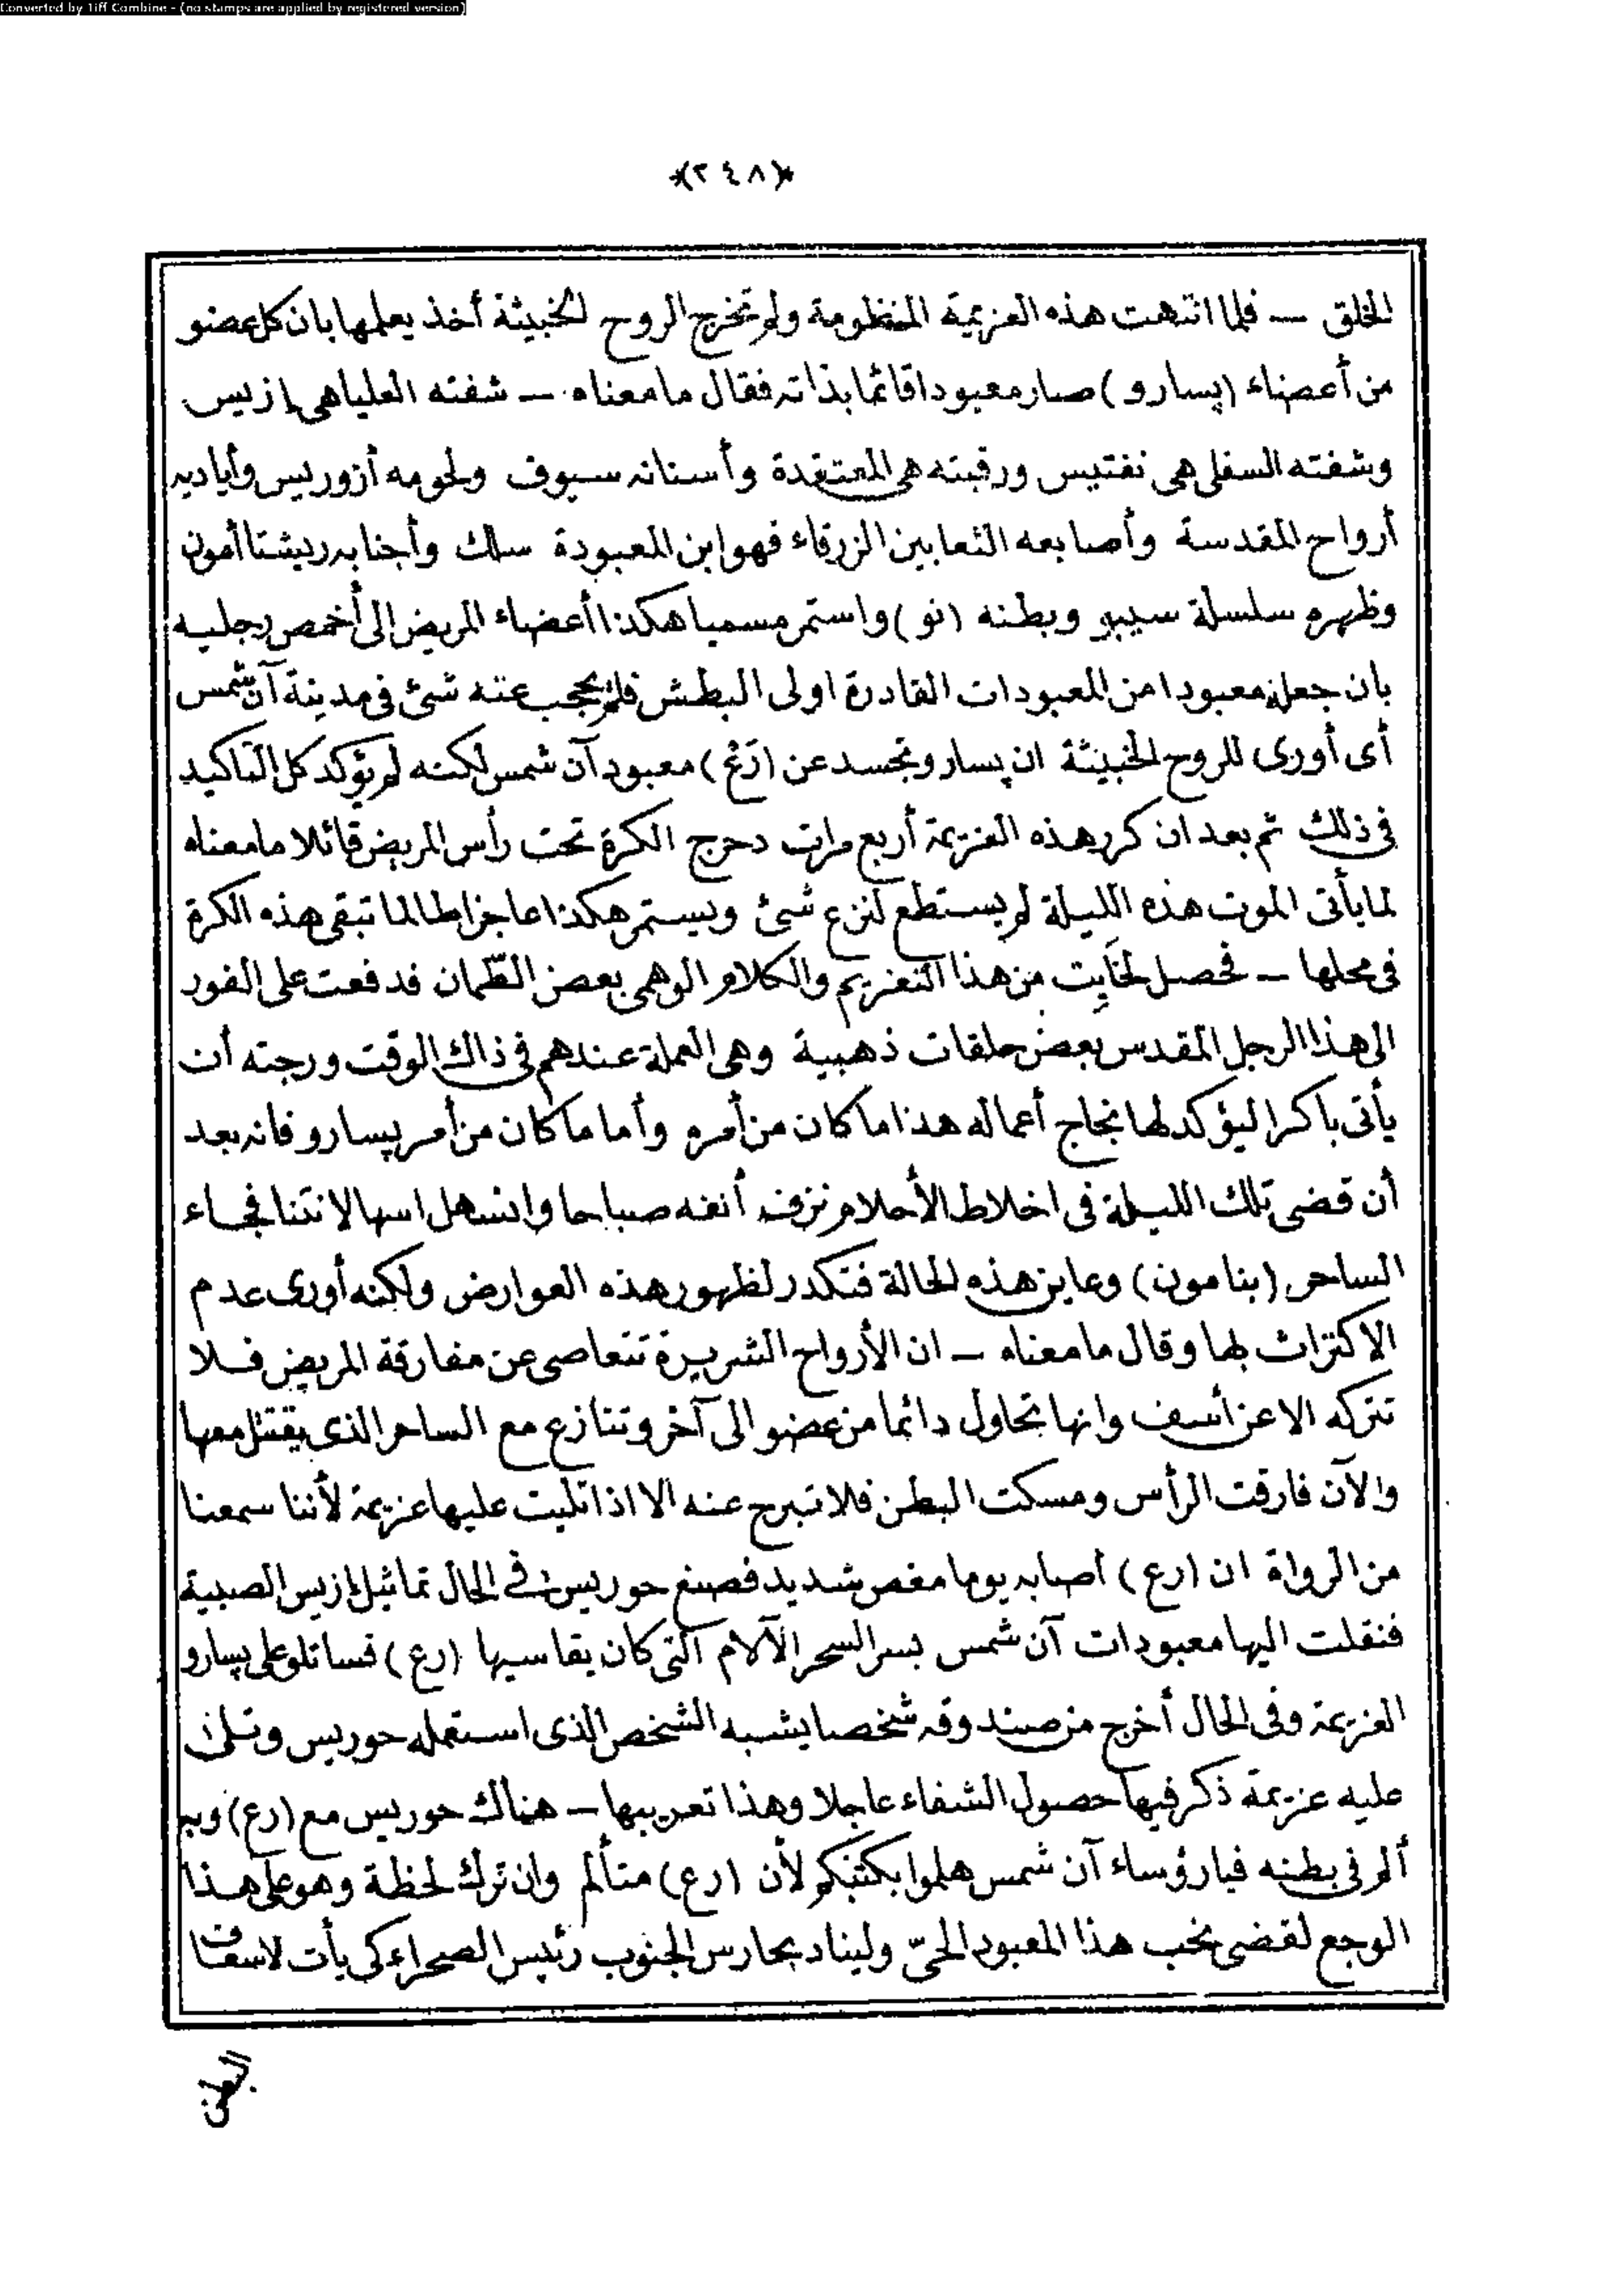 Converted by Tiff Combine - (no stamps are applied by registered version)
*(٢٤٨)*
الخلق — فلما انتهت هذه العزيمة المنظومة ولم تخرج الروح الخبيثة أخذ يعلمها بان كل عضو
من أعضاء (پسارو) صار معبودا قائما بذاته فقال ما معناه — شفته العليا هى إزيس
وشفته السفلى هى نفتيس ورقبته هى المعتقدة وأسنانه سيوف ولحومه أزوريس وأياديه
أرواح المقدسة وأصابعه الثعابين الزرقاء فهو ابن المعبودة سلك وأجنابه ريشتا أمون
وظهره سلسلة سيبو وبطنه (نو) واستمر مسميا هكذا أعضاء المريض الى أخمص رجليه
بان جعله معبودا من المعبودات القادرة اولى البطش فلم يحجب عنه شئ فى مدينة آن شمس
أى أورى للروح الخبيثة ان پسارو تجسد عن (رَعْ) معبود آن شمس لكنه لم يؤكد كل التاكيد
فى ذلك ثم بعد ان كرر هذه العزيمة أربع مرات دحرج الكرة تحت رأس المريض قائلا ما معناه
لما يأتى الموت هذه الليلة لم يستطع لنزع شئ ويستمر هكذا عاجزا طالما تبقى هذه الكرة
فى محلها — فحصل لخايت من هذا التعزيم والكلام الوهمى بعض الطّمان فدفعت على الفور
الى هذا الرجل المقدس بعض حلقات ذهبية وهى العملة عندهم فى ذاك الوقت ورجته أن
يأتى باكرا ليؤكد لها نجاح أعماله هذا ما كان من أمره وأما ما كان من أمر پسارو فانه بعد
أن قضى تلك الليلة فى اخلاط الأحلام نزف أنفه صباحا وانسهل اسهالا نتنا فجاء
الساحر (بنامون) وعاين هذه الحالة فتكدر لظهور هذه العوارض ولكنه أورى عدم
الاكتراث لها وقال ما معناه — ان الأرواح الشريرة تتعاصى عن مفارقة المريض فلا
تتركه الا عن أسف وانها تحاول دائما من عضو الى آخر وتتنازع مع الساحر الذى يقتتل معها
والآن فارقت الرأس ومسكت البطن فلا تبرح عنه الا اذا تليت عليها عزيمة لأننا سمعنا
من الرواة ان (رع) اصابه يوما مغص شديد فصنع حوريس فى الحال تماثيل لإزيس الصبية
فنقلت اليها معبودات آن شمس بسر السحر الآلام التى كان يقاسيها (رع) فساتلو على پسارو
العزيمة وفى الحال أخرج من صندوقه شخصا يشبه الشخص الذى استعمله حوريس وتلى
عليه عزيمة ذكر فيها حصول الشفاء عاجلا وهذا تعريبها — هناك حوريس مع (رع) وبه
ألم فى بطنه فيا رؤساء آن شمس هلموا بكتبكم لأن (رع) متألم وان ترك لحظة وهو على هذا
الوجع لقضى نحب هذا المعبود الحىّ ولينادِ بحارس الجنوب رئيس الصحراء كى يأت لاسعاف